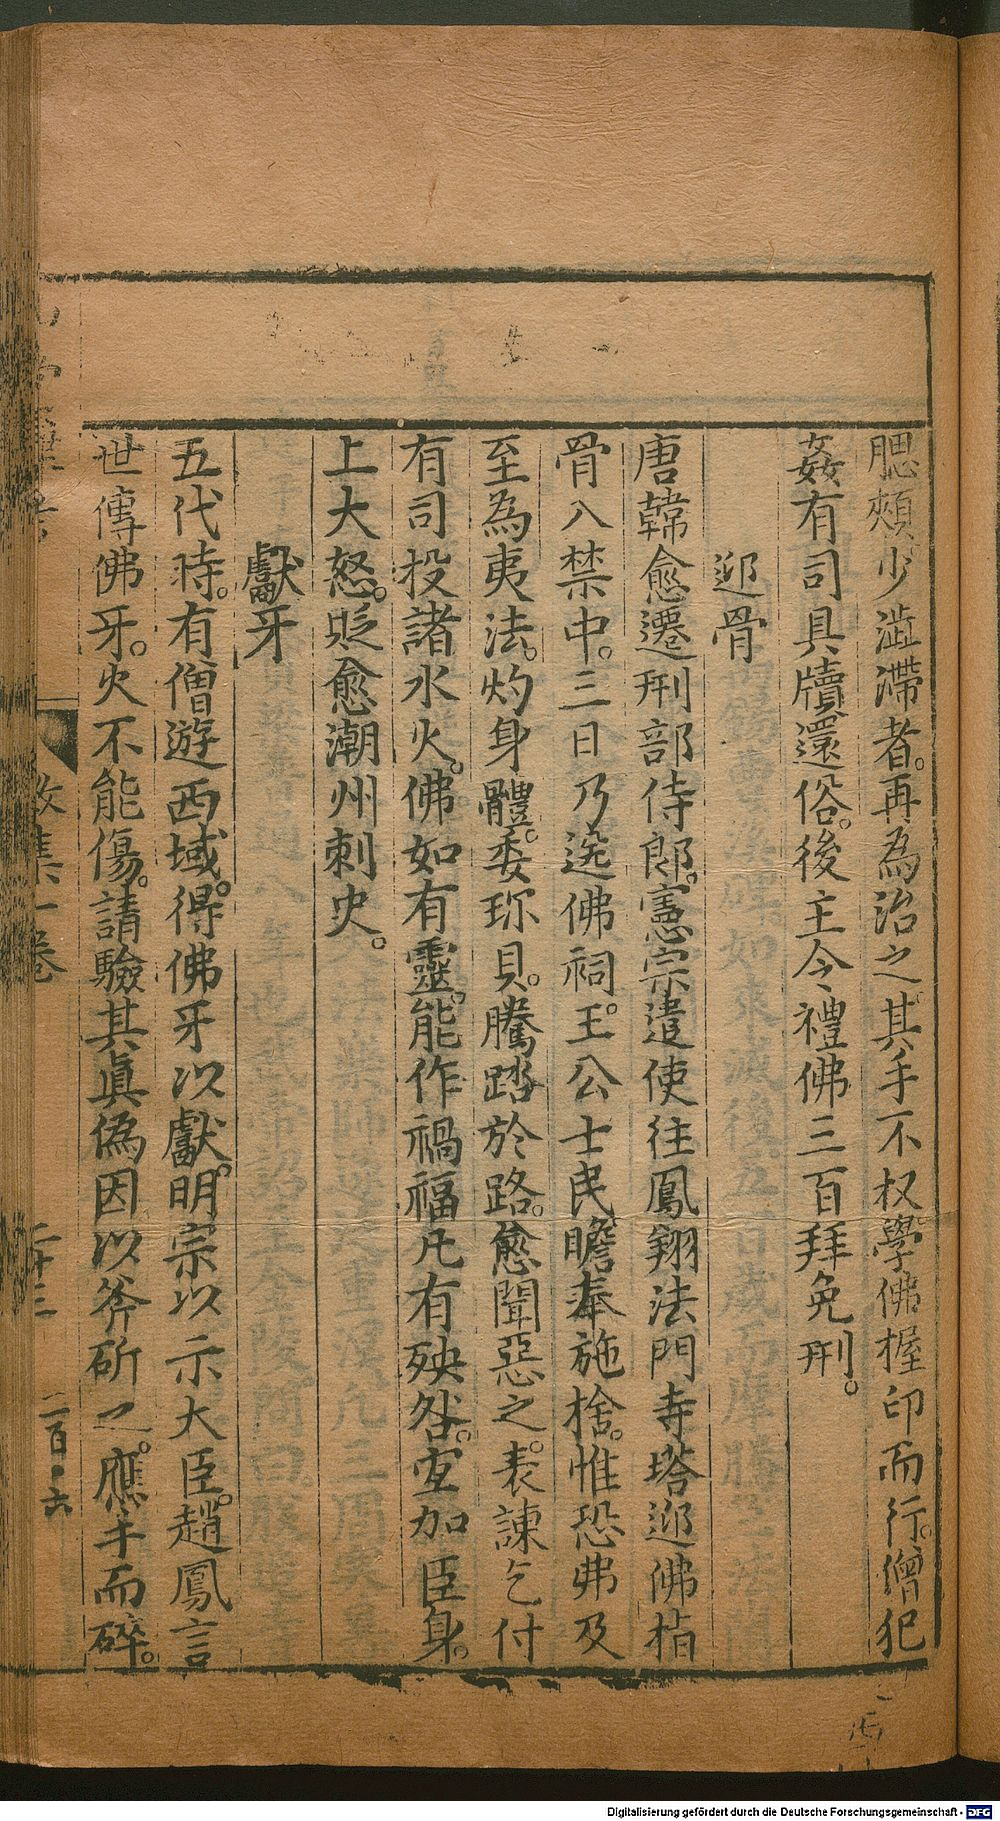 腮頰。少澁滯者。再為治之。其手不杈。學佛握印而行。僧犯
姦有司具牘還俗。後主令禮佛三百拜免刑。
迎骨
唐韓愈遷刑部侍郎。憲宗遣使往鳳翔法門寺塔迎佛指
骨入禁中。三日乃送佛祠。王公士民瞻奉施捨。惟恐弗及
至為夷法。灼身體。委珎貝。騰踏於路。愈聞惡之。表諫乞付
有司投諸水火。佛如有靈。能作禍福。凡有殃咎。宜加臣身。
上大怒。貶愈潮州刺史。
獻牙
五代時。有僧遊西域。得佛牙以獻。明宗以示大臣。趙鳳言
世傳佛牙。火不能傷。請驗其眞偽。因以斧斫之。應手而碎。
散集一卷
二十三
二百六
Digitalisierung gefördert durch die Deutsche Forschungsgemeinschaft - DFG